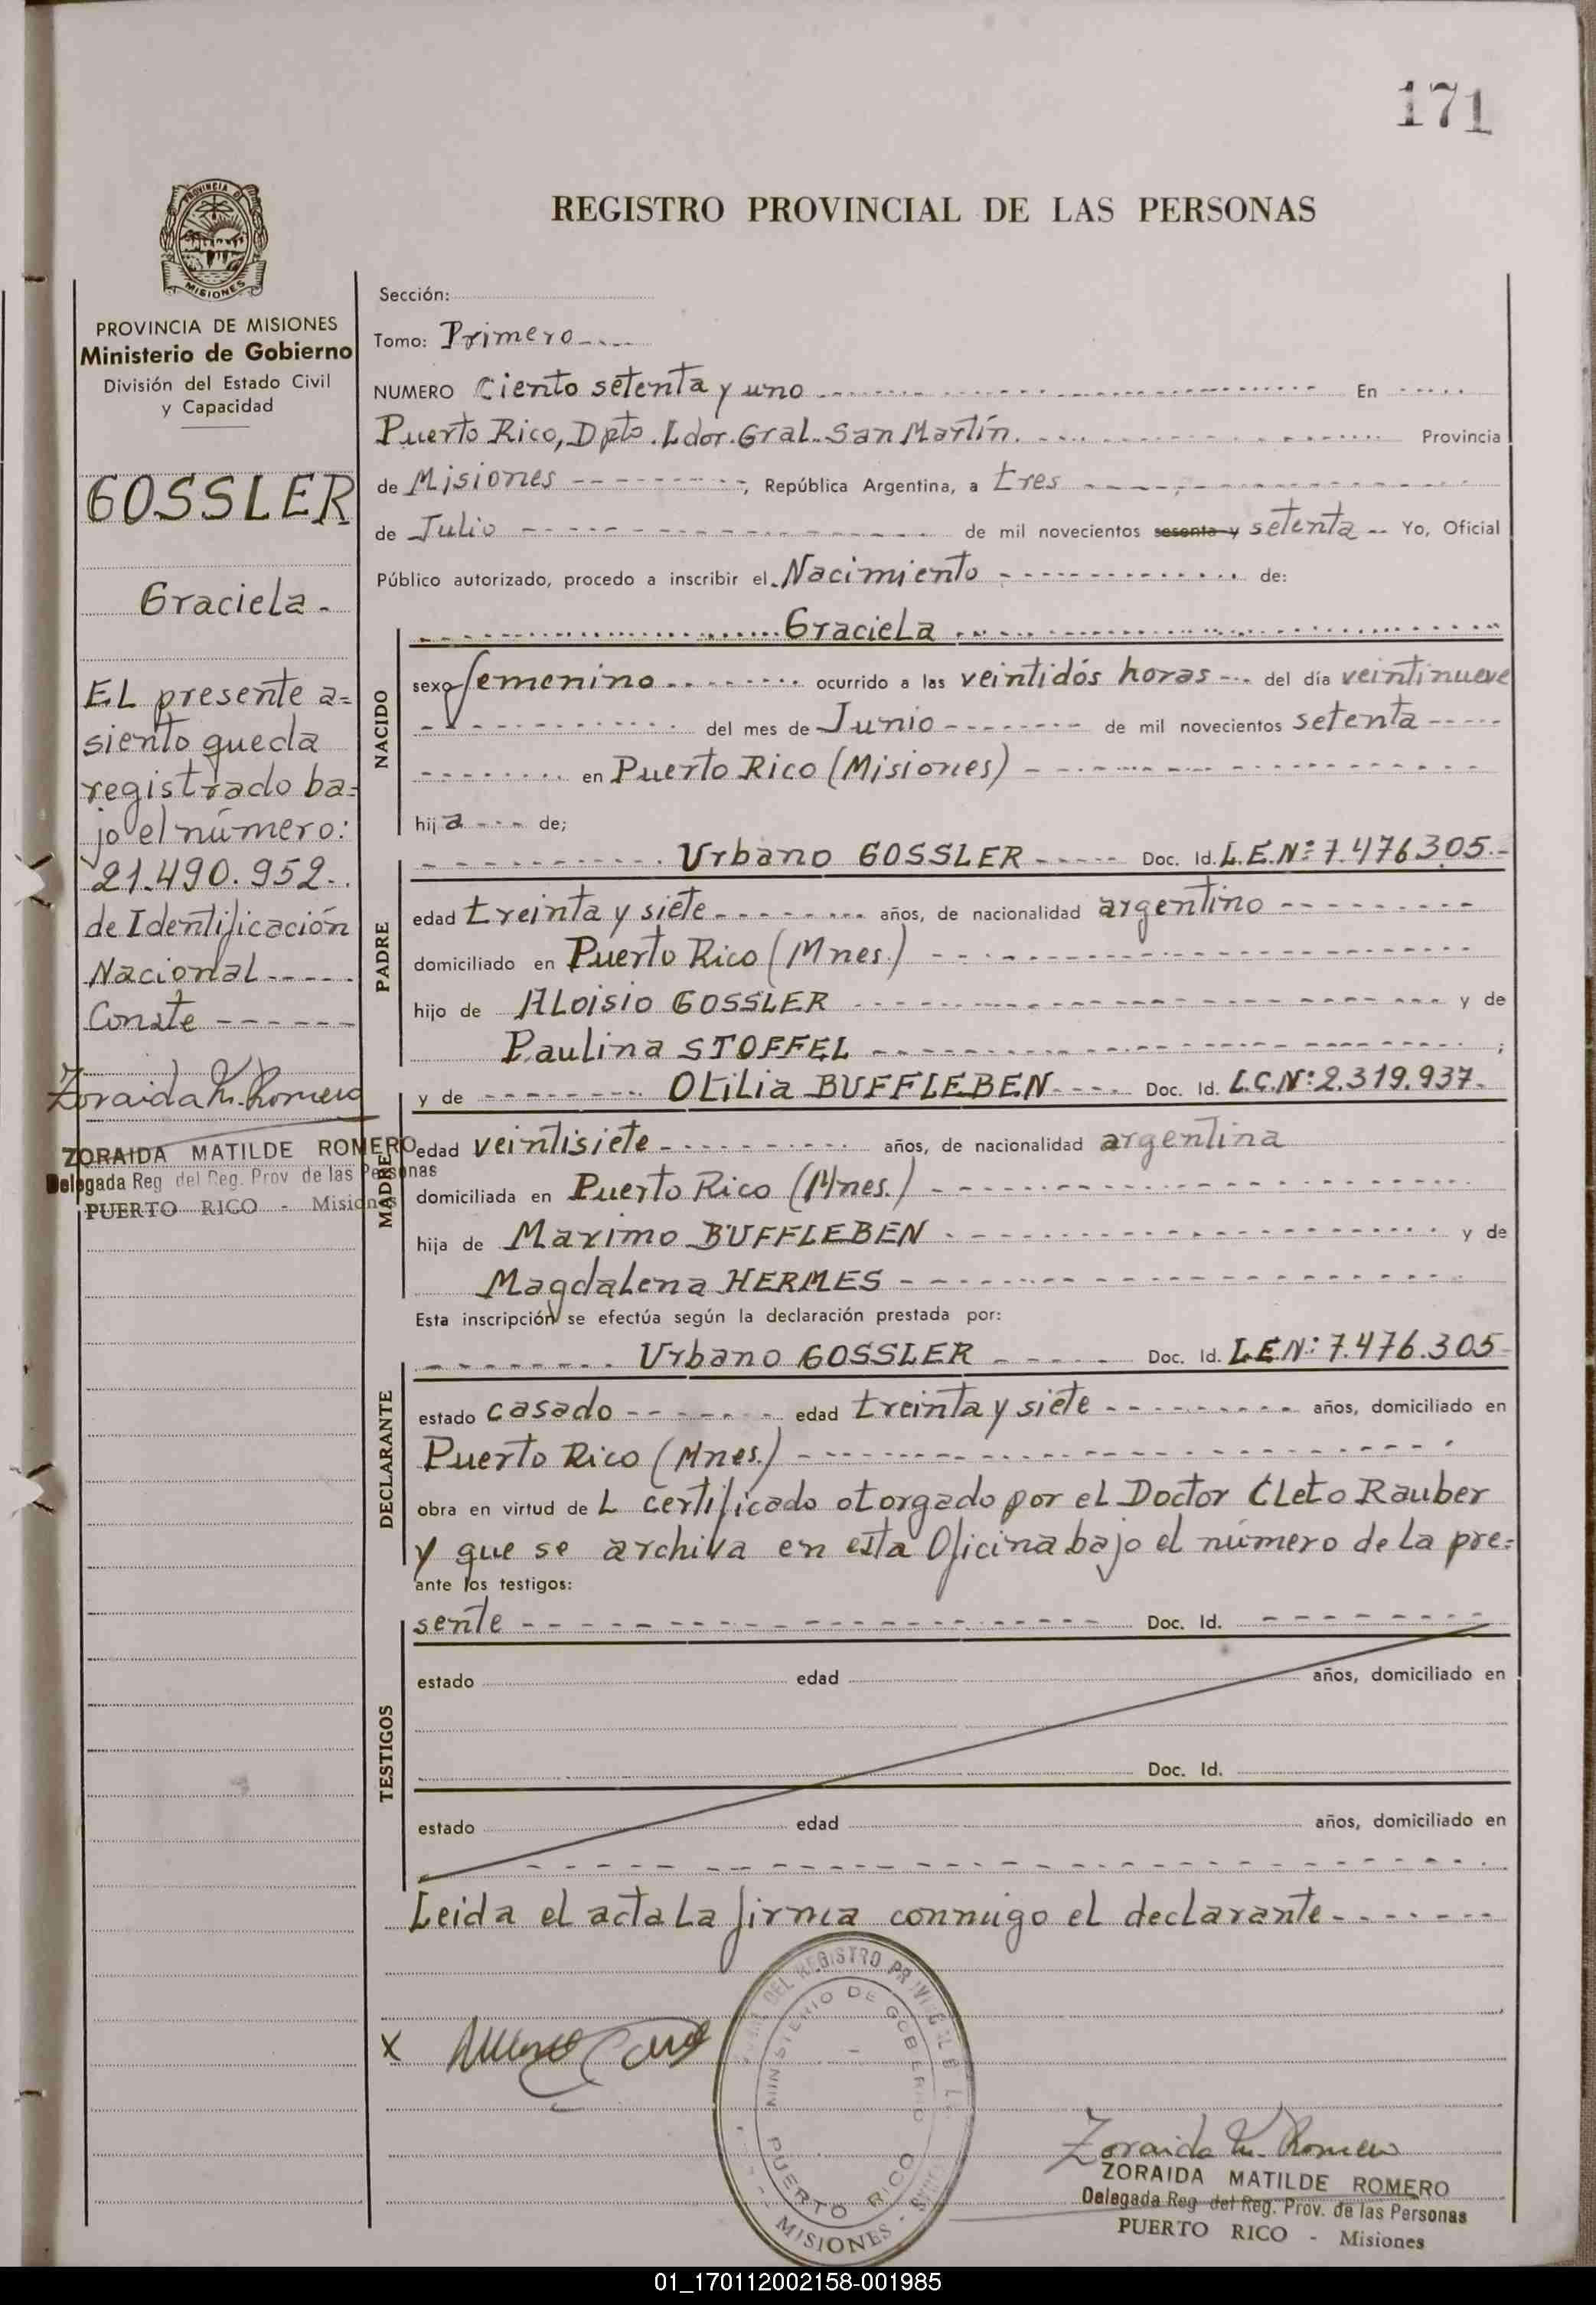 171
PROVINCIA DE
MISIONES
REGISTRO PROVINCIAL DE LAS PERSONAS
PROVINCIA DE MISIONES
Ministerio de Gobierno
División del Estado Civil
y Capacidad
GOSSLER
Graciela.
EL presente a=
siento queda
registrado ba=
jo el número:
21.490.952.
de Identificación
Nacional
Conste
Zoraida M. Romero
ZORAIDA MATILDE ROMERO
Delegada Reg del Reg. Prov de las Personas
PUERTO RICO - Misiones
Sección:
Tomo: Primero
NUMERO Ciento setenta y uno En
Puerto Rico, Dpto. Ldor. Gral. San Martín. Provincia
de Misiones, República Argentina, a tres
de Julio de mil novecientos sesenta y setenta Yo, Oficial
Público autorizado, procedo a inscribir el Nacimiento de:
NACIDO
Graciela
sexo femenino ocurrido a las veintidós horas del día veintinueve
del mes de Junio de mil novecientos setenta
en Puerto Rico (Misiones)
hij a de;
PADRE
Urbano GOSSLER Doc. Id. L.E.Nº 7.476.305.
edad treinta y siete años, de nacionalidad argentino
domiciliado en Puerto Rico (Mnes.)
hijo de ALoisio GOSSLER y de
Paulina STOFFEL ;
MADRE
y de OtiLia BUFFLEBEN Doc. Id. L.C.Nº: 2.319.937.
edad veintisiete años, de nacionalidad argentina
domiciliada en Puerto Rico (Mnes.)
hija de Maximo BUFFLEBEN y de
MagdaLena HERMES
Esta inscripción se efectúa según la declaración prestada por:
DECLARANTE
Urbano GOSSLER Doc. Id. L.E.N: 7.476.305
estado casado edad treinta y siete años, domiciliado en
Puerto Rico (Mnes.)
obra en virtud de L certificado otorgado por eL Doctor CLeto Rauber
y que se archiva en esta Oficina bajo el número de La pre=
ante los testigos:
TESTIGOS
sente Doc. Id.
estado edad años, domiciliado en
Doc. Id.
estado edad años, domiciliado en
Leida el acta La firma conmigo el declarante
x
DEL REGISTRO
MINISTERIO DE GOBIERNO
PUERTO RICO
MISIONES
Zoraida M. Romero
ZORAIDA MATILDE ROMERO
Delegada Reg del Reg. Prov. de las Personas
PUERTO RICO - Misiones
01_170112002158-001985